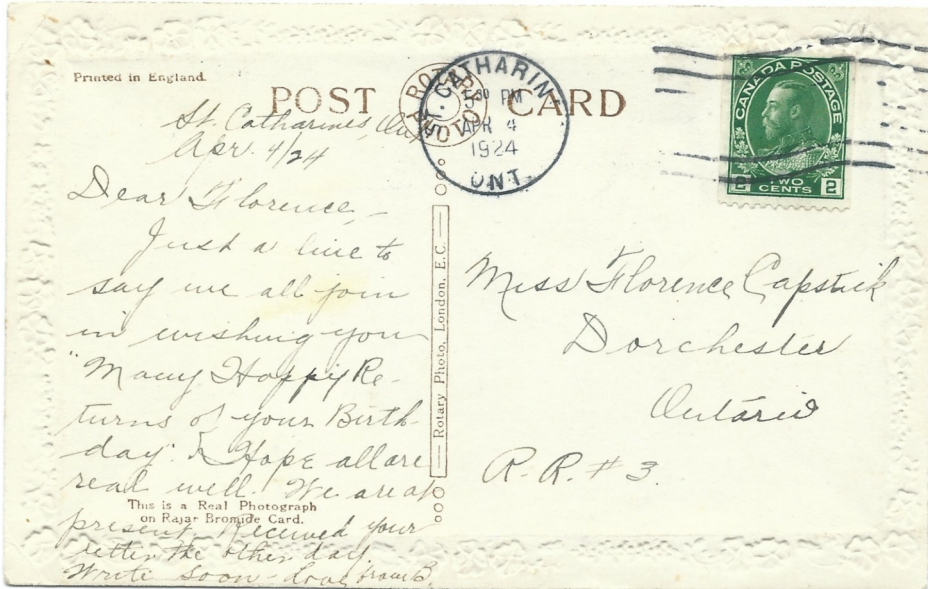 Printed in England.
POST CARD
ROTARY PHOTO
ST. CATHARINES
30 PM
APR 4
1924
ONT.
CANADA POSTAGE
2 TWO CENTS 2
St. Catharines Ont
Apr. 4/24
Dear Florence,-
Just a line to
say we all join
in wishing you
"Many Happy Re-
turns of your Birth-
day". I Hope all are
real well. We are at
present. Received your
letter the other day.
Write soon - Love from B.
This is a Real Photograph
on Rajar Bromide Card.
Rotary Photo, London, E.C.
Miss Florence Capstick
Dorchester
Ontario
R.R. # 3.